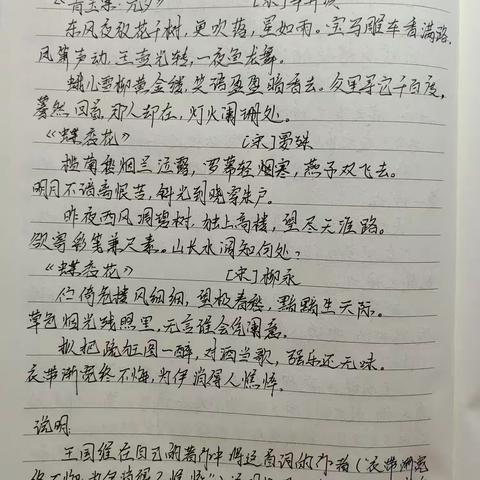 《青玉案·元夕》 [宋]辛弃疾
东风夜放花千树,更吹落,星如雨。宝马雕车香满路,
凤箫声动,玉壶光转,一夜鱼龙舞。
蛾儿雪柳黄金缕,笑语盈盈暗香去。众里寻它千百度,
蓦然回首,那人却在,灯火阑珊处。
《蝶恋花》 [宋]晏殊
槛菊愁烟兰泣露,罗幕轻烟寒,燕子双飞去。
明月不谙离恨苦,斜光到晓穿朱户。
昨夜西风凋碧树,独上高楼,望尽天涯路。
欲寄彩笺兼尺素。山长水阔知何处?
《蝶恋花》 [宋]柳永
伫倚危楼风细细,望极春愁,黯黯生天际。
草色烟光残照里,无言谁会凭阑意。
拟把疏狂图一醉,对酒当歌,强乐还无味。
衣带渐宽终不悔,为伊消得人憔悴。
说明:
王国维在自己的著作中将这首词的作者(《衣带渐宽